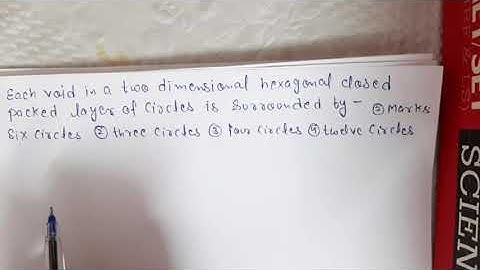 Each void in a two dimensional hexagonal closed
packed layer of circles is surrounded by - ② Marks
Six circles ② three circles ③ four circles ④ twelve circles
SCIEN